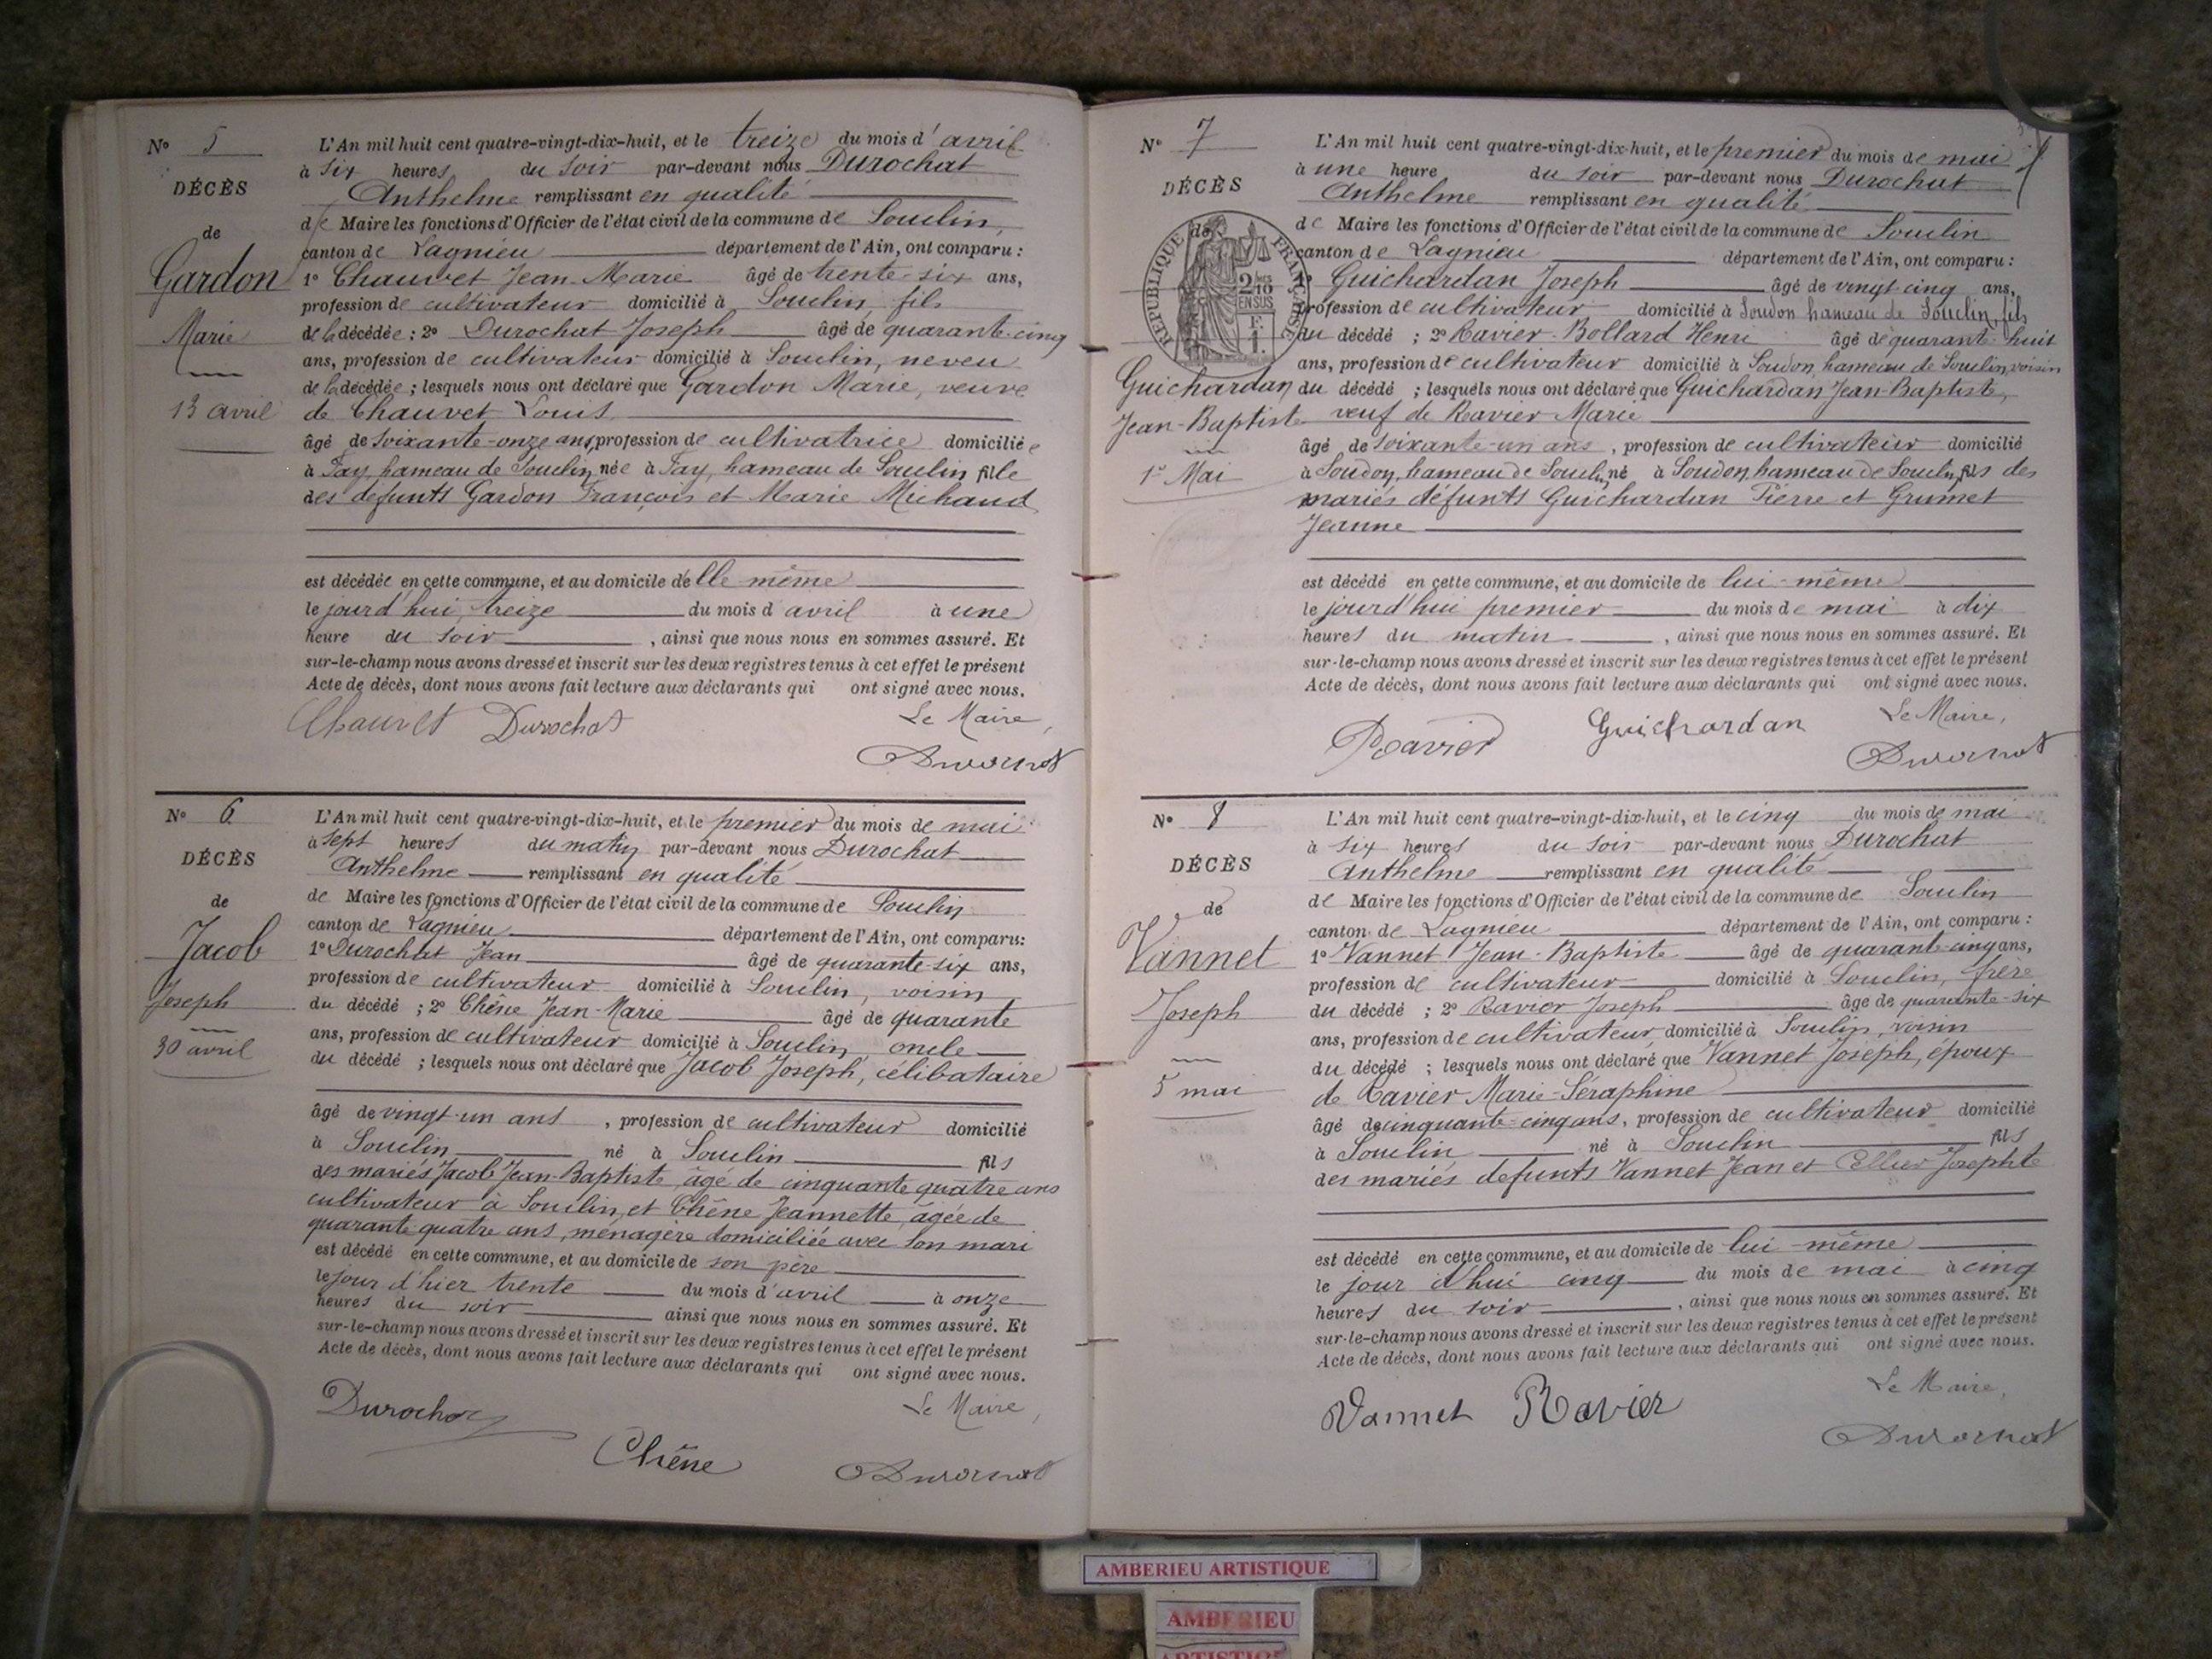 N° 5
DÉCÈS
de
Gardon
Marie
13 avril
L'An mil huit cent quatre-vingt-dix-huit, et le treize du mois d'avril
à six heures du soir par-devant nous Durochat
Anthelme remplissant en qualité
de Maire les fonctions d'Officier de l'état civil de la commune de Souclin,
canton de Lagnieu département de l'Ain, ont comparu :
1° Chauvet Jean-Marie âgé de trente-six ans,
profession de cultivateur domicilié à Souclin, fils
de la décédée ; 2° Durochat Joseph âgé de quarante-cinq
ans, profession de cultivateur domicilié à Souclin, neveu
de la décédée ; lesquels nous ont déclaré que Gardon Marie, veuve
de Chauvet Louis
âgé de soixante-onze ans, profession de cultivatrice domiciliée
à Fay, hameau de Souclin, née à Fay, hameau de Souclin fille
des defunts Gardon François et Marie Michaud
est décédée en cette commune, et au domicile d'elle même
le jourd'hui, treize du mois d'avril à une
heure du soir , ainsi que nous nous en sommes assuré. Et
sur-le-champ nous avons dressé et inscrit sur les deux registres tenus à cet effet le présent
Acte de décès, dont nous avons fait lecture aux déclarants qui ont signé avec nous.
Chauvet Durochat Le Maire,
N° 6
DÉCÈS
de
Jacob
Joseph
30 avril
L'An mil huit cent quatre-vingt-dix-huit, et le premier du mois de mai
à sept heures du matin par-devant nous Durochat
Anthelme remplissant en qualité
de Maire les fonctions d'Officier de l'état civil de la commune de Souclin
canton de Lagnieu département de l'Ain, ont comparu:
1° Durochat Jean âgé de quarante-six ans,
profession de cultivateur domicilié à Souclin, voisin
du décédé ; 2° Chêne Jean-Marie âgé de quarante
ans, profession de cultivateur domicilié à Souclin oncle
du décédé ; lesquels nous ont déclaré que Jacob Joseph, célibataire
âgé de vingt-un ans , profession de cultivateur domicilié
à Souclin né à Souclin fils
des mariés Jacob Jean-Baptiste, âgé de cinquante quatre ans
cultivateur à Souclin, et Chêne Jeannette, âgée de
quarante quatre ans, ménagère domiciliée avec son mari
est décédé en cette commune, et au domicile de son père
le jour d'hier trente du mois d'avril à onze
heures du soir ainsi que nous nous en sommes assuré. Et
sur-le-champ nous avons dressé et inscrit sur les deux registres tenus à cet effet le présent
Acte de décès, dont nous avons fait lecture aux déclarants qui ont signé avec nous.
Durochat Le Maire,
Chêne
N° 7
DÉCÈS
de
RÉPUBLIQUE FRANÇAISE
2/10
EN SUS
Guichardan
Jean-Baptiste
1er Mai
L'An mil huit cent quatre-vingt-dix-huit, et le premier du mois de mai
à une heure du soir par-devant nous Durochat
Anthelme remplissant en qualité
de Maire les fonctions d'Officier de l'état civil de la commune de Souclin
canton de Lagnieu département de l'Ain, ont comparu :
1° Guichardan Joseph âgé de vingt cinq ans,
profession de cultivateur domicilié à Soudon hameau de Souclin, fils
du décédé ; 2° Ravier-Bollard Henri âgé de quarante-huit
ans, profession de cultivateur domicilié à Soudon, hameau de Souclin, voisin
du décédé ; lesquels nous ont déclaré que Guichardan Jean-Baptiste,
veuf de Ravier Marie
âgé de soixante-un ans , profession de cultivateur domicilié
à Soudon, hameau de Souclin, né à Soudon, hameau de Souclin, fils des
mariés défunts Guichardan Pierre et Grumet
Jeanne
est décédé en cette commune, et au domicile de lui-même
le jourd'hui premier du mois de mai à dix
heures du matin , ainsi que nous nous en sommes assuré. Et
sur-le-champ nous avons dressé et inscrit sur les deux registres tenus à cet effet le présent
Acte de décès, dont nous avons fait lecture aux déclarants qui ont signé avec nous.
Ravier Guichardan Le Maire,
N° 8
DÉCÈS
de
Vannet
Joseph
5 mai
L'An mil huit cent quatre-vingt-dix-huit, et le cinq du mois de mai
à six heures du soir par-devant nous Durochat
Anthelme remplissant en qualité
de Maire les fonctions d'Officier de l'état civil de la commune de Souclin
canton de Lagnieu département de l'Ain, ont comparu :
1° Vannet Jean-Baptiste âgé de quarante-cinq ans,
profession de cultivateur domicilié à Souclin, frère
du décédé ; 2° Ravier Joseph âgé de quarante-six
ans, profession de cultivateur domicilié à Souclin, voisin
du décédé ; lesquels nous ont déclaré que Vannet Joseph, époux
de Ravier Marie-Séraphine
âgé de cinquante-cinq ans, profession de cultivateur domicilié
à Souclin né à Souclin fils
des mariés defunts Vannet Jean et Cellier Josephte
est décédé en cette commune, et au domicile de lui-même
le jour d'hui cinq du mois de mai à cinq
heures du soir , ainsi que nous nous en sommes assuré. Et
sur-le-champ nous avons dressé et inscrit sur les deux registres tenus à cet effet le présent
Acte de décès, dont nous avons fait lecture aux déclarants qui ont signé avec nous.
Vannet Ravier Le Maire,
AMBERIEU ARTISTIQUE
AMBERIEU
ARTISTIQUE